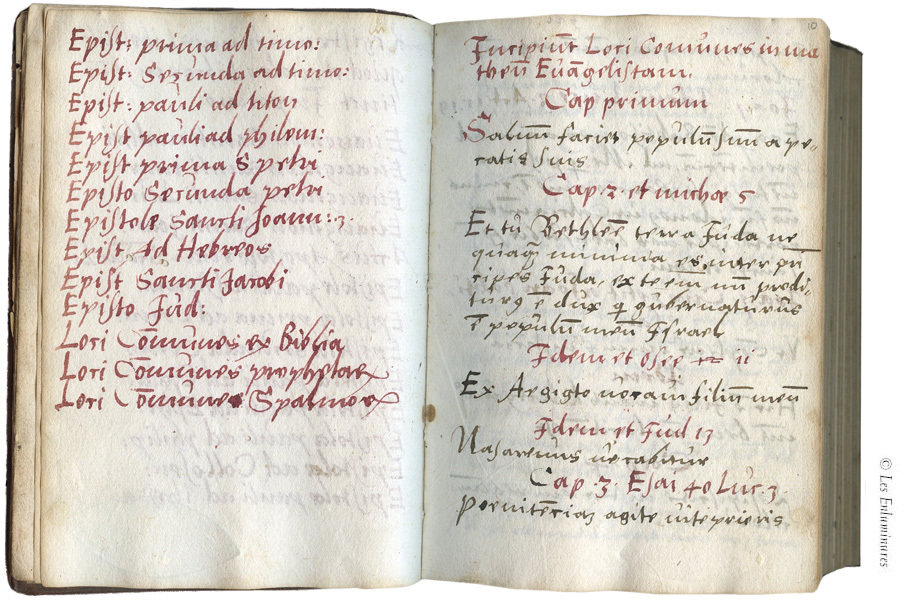 Epist: prima ad timo:
Epist: Secunda ad timo:
Epist: pauli ad titon
Epist pauli ad philem:
Epist prima S petri
Episto Secunda petri
Epistole Sancti Joann: 3.
Epist Ad Hebreos
Epist Sancti Jacobi
Episto Jud:
Loci Cōmunes ex Biblia
Loci Comunes prophetar
Loci Cōmunes Spalmor
Incipiūt Loci Comunes in ma
theū Euāgelistam.
Cap primum
Saluū faciet populū suū a pe-
catis suis
Cap. 2. et micheæ 5
Et tu Bethleē terra Juda ne
quaq̄ minima es, inter pri
cipes Juda, ex te em̄ mī prodi-
tur9 ē dux q gubernaturus
ē populū meū Israel
Idem et Osee 11
Ex Aegipto vocavi filiū meū
Idem et Jud 13
Nasarenus vocabitur
Cap. 3. Esai 40 Luc. 3.
Poenitēciam agite vite prioris
© Les Enluminures